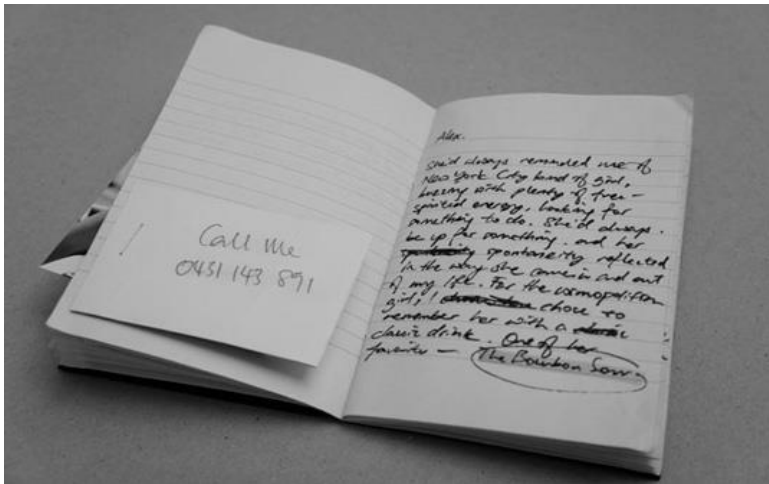 Call Me
0431 143 891
Alex.
She'd always reminded me of
New York City kind of girl,
buzzing with plenty of free-
spirited energy, looking for
something to do. She'd always
be up for something, and her
spontaneity reflected
in the way she came in and out
of my life. For the cosmopolitan
girl, I chose to
remember her with a
classic drink. One of her
favorite —
The Bourbon Sour